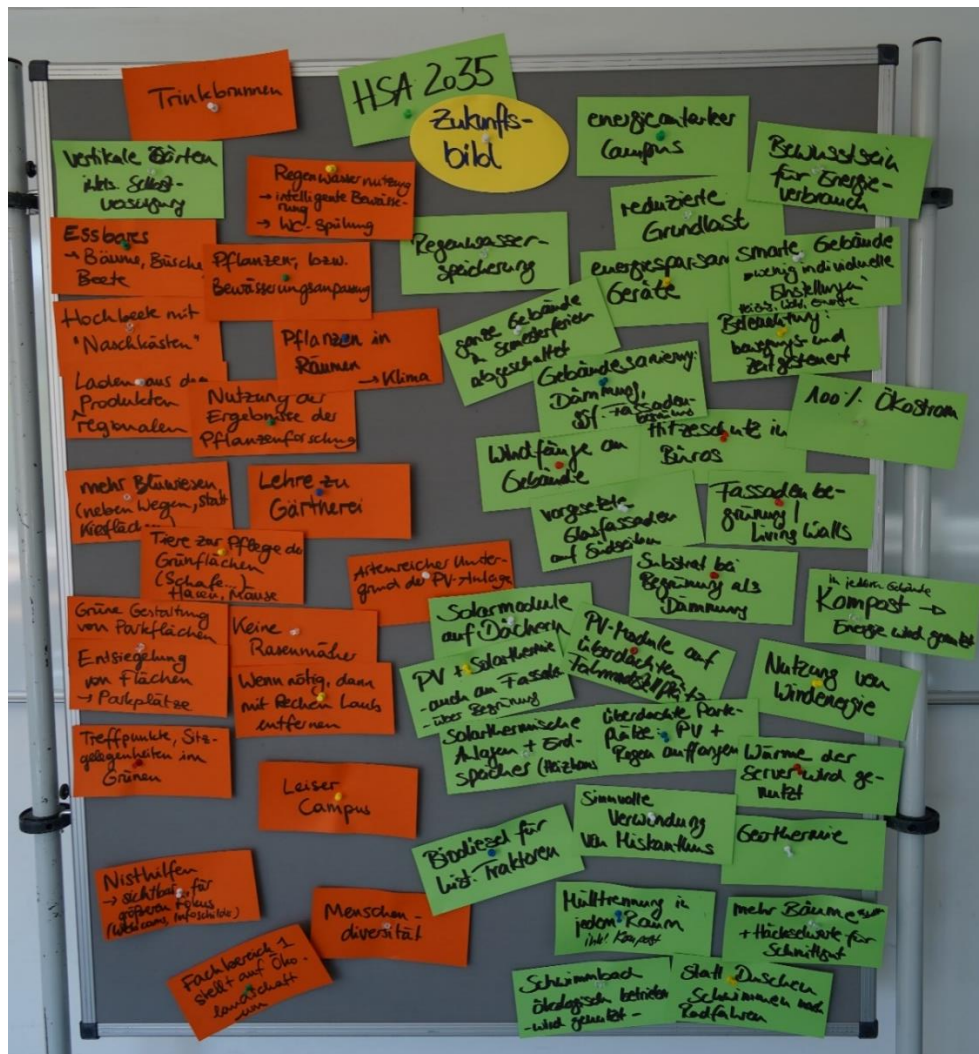 Trinkbrunnen
HSA 2035
Zukunfts-
bild
energieautarker
Campus
Bewusstsein
für Energie-
verbrauch
vertikale Gärten
inkl. Selbst-
versorgung
Regenwassernutzung
→ intelligente Bewässe-
rung
→ WC-Spülung
reduzierte
Grundlast
Essbares
→ Bäume, Büsche
Beete
Pflanzen-, bzw.
Bewässerungsanpassung
Regenwasser-
speicherung
energiesparsame
Geräte
smarte Gebäude
wenig individuelle
Einstellungen
Hochbeete mit
"Naschkästen"
Pflanzen in
Räumen
→ Klima
ganze Gebäude
in Semesterferien
abgeschaltet
Beleuchtung:
bewegungs- und
zeitgesteuert
Laden aus den
Produkten
regionalen
Nutzung der
Ergebnisse der
Pflanzenforschung
Gebäudesanierung:
Dämmung,
ggf. Fassaden-
begrünung
100% Ökostrom
mehr Blühwiesen
(neben Wegen, statt
Kiesflächen)
Lehre zu
Gärtnerei
Windfänge an
Gebäude
Hitzeschutz in
Büros
Tiere zur Pflege der
Grünflächen
(Schafe...)
Hasen, Mäuse
Artenreicher Unter-
grund der PV-Anlage
vorgesetzte
Glasfassaden
auf Südseiten
Fassadenbe-
grünung /
Living Walls
Substrat bei
Begrünung als
Dämmung
in jedem Gebäude
Kompost →
Energie wird genutzt
Grüne Gestaltung
von Parkflächen
Keine
Rasenmäher
Solarmodule
auf Dächern
PV-Module auf
überdachten
Fahrradstellplätze
Entsiegelung
von Flächen
→ Parkplätze
Wenn nötig, dann
mit Rechen Laub
entfernen
PV + Solarthermie
- auch an Fassade
- über Begrünung
Nutzung von
Windenergie
Treffpunkte, Sitz-
gelegenheiten im
Grünen
Solarthermische
Anlagen + Erd-
speicher (Heizhaus
überdachte Park-
plätze: PV +
Regen auffangen
Wärme der
Server wird ge-
nutzt
Leiser
Campus
Sinnvolle
Verwendung
von Miskanthus
Geothermie
Biodiesel für
Traktoren
Nisthilfen
→ sichtbar für
größeren Fokus
(Webcams, Infoschilder)
Menschen-
diversität
Mülltrennung in
jedem Raum
inkl. Kompost
mehr Bäume
+ Häckselwerte für
Schnittgut
Fachbereich 1
stellt auf Öko-
landschaft
um
Schwimmbad
ökologisch betrieben
- wird genutzt -
Statt Duschen
Schwimmen nach
Radfahren